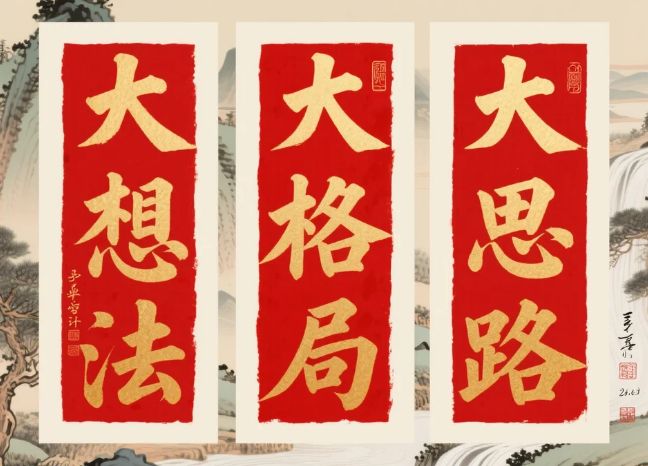 大思路
大格局
大想法